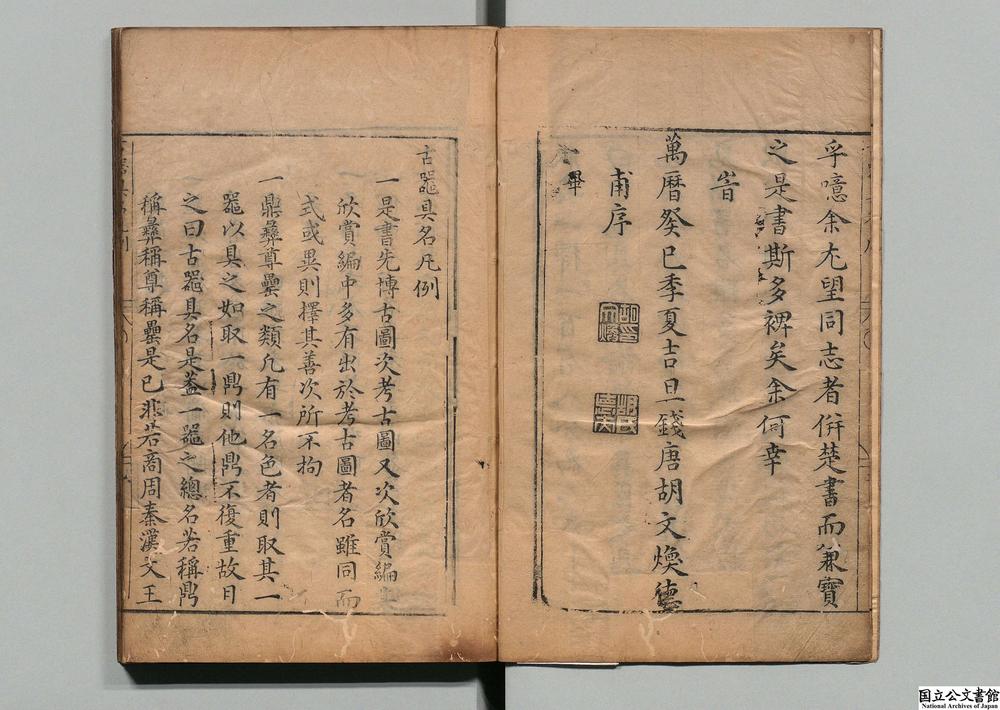 孚噫余尤望同志者俻楚書而兼寶
之是書斯多裨矣余何幸
旹
萬曆癸巳季夏吉旦錢唐胡文煥德
甫序
畢
古噐具名凡例
一是書先博古圖次考古圖又次欣賞編
欣賞編中多有出於考古圖者名雖同而
式或異則擇其善次所不拘
一鼎彛尊罍之類凢有一名色者則取其一
噐以具之如取一鼎則他鼎不復重故目
之曰古噐具名是葢一噐之總名若稱鼎
稱彛稱尊稱罍是已非若商周秦漢文王
国立公文書館
National Archives of Japan